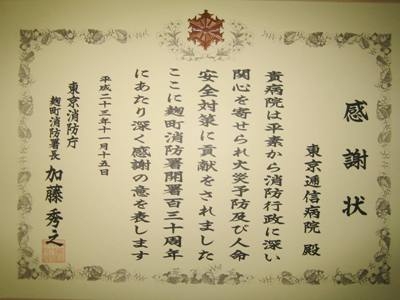 感謝状
東京逓信病院 殿
貴病院は平素から消防行政に深い
関心を寄せられ火災予防及び人命
安全対策に貢献をされました
ここに麹町消防署開署百三十周年
にあたり深く感謝の意を表します
平成二十三年十一月十五日
東京消防庁
麹町消防署長 加藤秀之